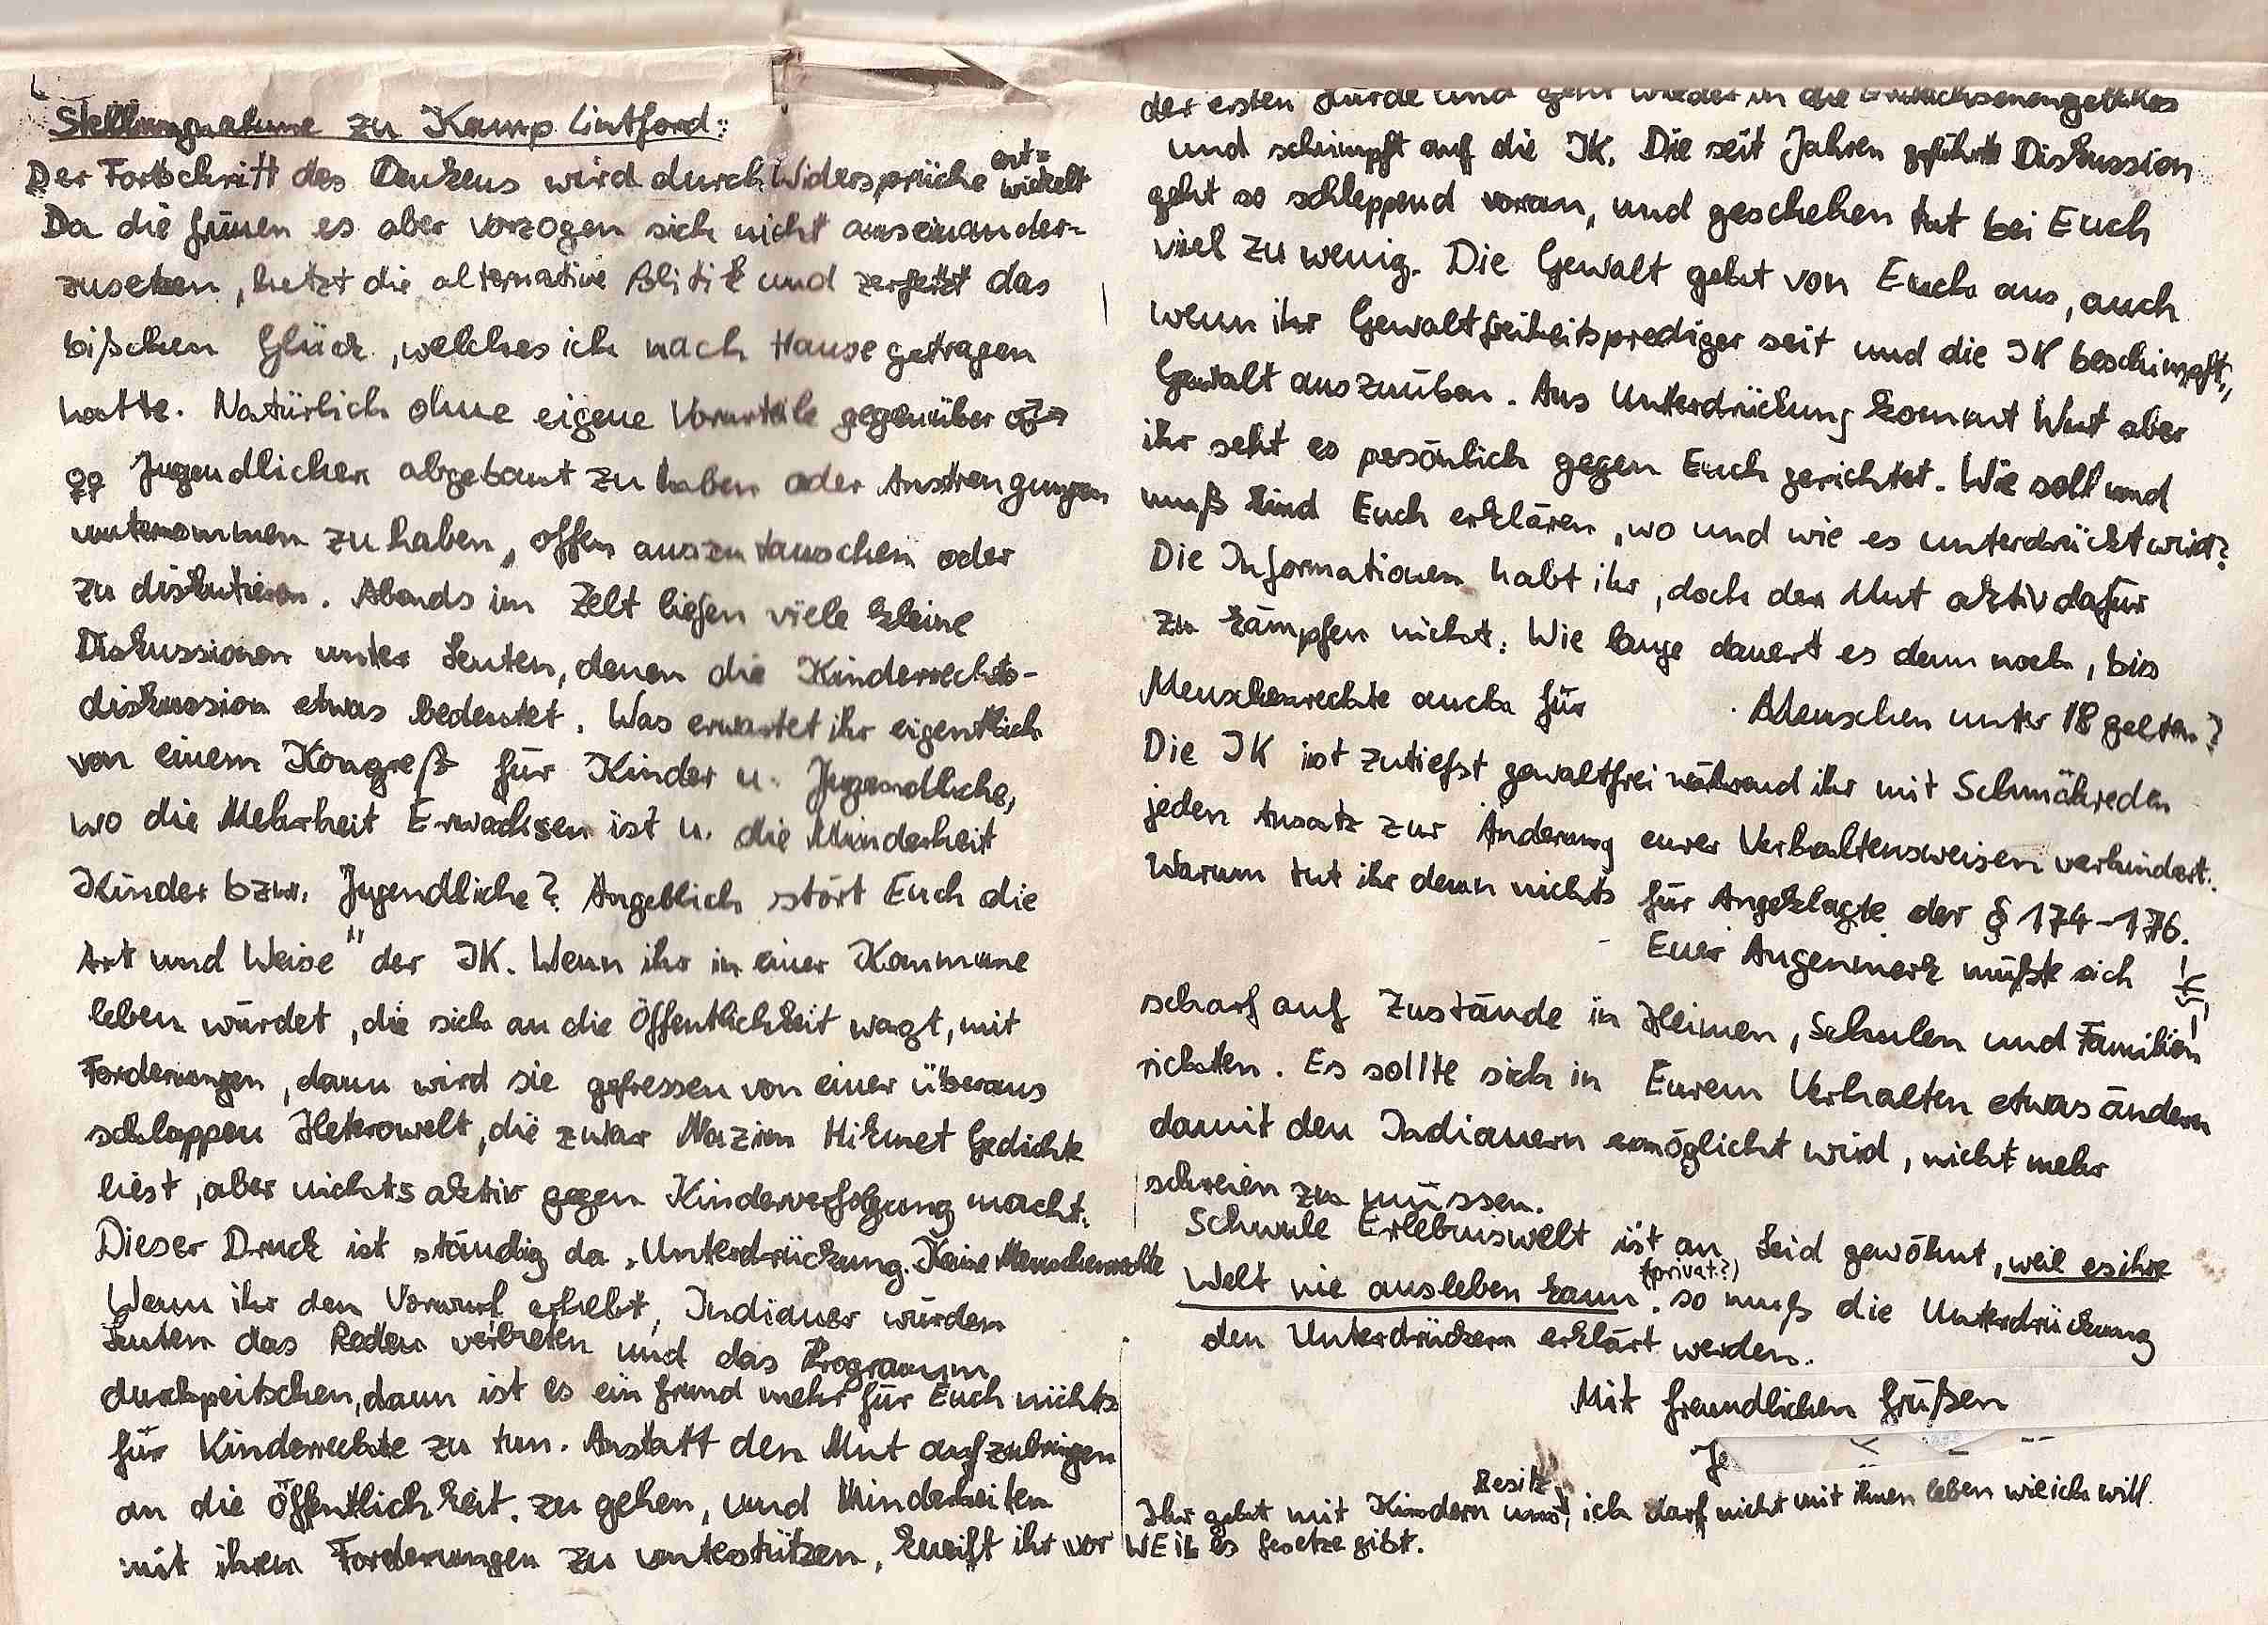 Stellungnahme zu Kamp Lintford:
Der Fortschritt des Denkens wird durch Widersprüche ent=
wickelt
Da die Grünen es aber vorzogen sich nicht auseinander-
zusetzen, hetzt die alternative Politik und zerfetzt das
bißchen Glück, welches ich nach Hause getragen
hatte. Natürlich ohne eigene Vorurteile gegenüber
♀♀ Jugendlicher abgebaut zu haben oder Anstrengungen
unternommen zu haben, offen auszutauschen oder
zu diskutieren. Abends im Zelt liefen viele kleine
Diskussionen unter Leuten, denen die Kinderrechts-
diskussion etwas bedeutet. Was erwartet ihr eigentlich
von einem Kongreß für Kinder u. Jugendliche,
wo die Mehrheit Erwachsen ist u. die Minderheit
Kinder bzw. Jugendliche? Angeblich stört Euch die
Art und Weise" der IK. Wenn ihr in einer Kommune
leben würdet, die sich an die Öffentlichkeit wagt, mit
Forderungen, dann wird sie gefressen von einer überaus
schlappen Heterowelt, die zwar Nazim Hikmet Gedichte
liest, aber nichts aktiv gegen Kinderverfolgung macht.
Dieser Druck ist ständig da. Unterdrückung. Keine Menschenrechte
Wenn ihr den Vorwurf erhebt, Indianer würden
Leuten das Reden verbieten und das Programm
durchpeitschen, dann ist es ein Grund mehr für Euch nichts
für Kinderrechte zu tun. Anstatt den Mut aufzubringen
an die Öffentlichkeit zu gehen, und Minderheiten
mit ihren Forderungen zu unterstützen, kneift ihr vor
der ersten Hürde und geht wieder in die
und schimpft auf die IK. Die seit Jahren geführte Diskussion
geht so schleppend voran, und geschehen tut bei Euch
viel zu wenig. Die Gewalt geht von Euch aus, auch
wenn ihr Gewaltfreiheitsprediger seit und die IK beschimpft,
Gewalt auszuüben. Aus Unterdrückung kommt Wut aber
ihr seht es persönlich gegen Euch gerichtet. Wie soll und
muß kind Euch erklären, wo und wie es unterdrückt wird?
Die Informationen habt ihr, doch den Mut aktiv dafür
zu kämpfen nicht. Wie lange dauert es denn noch, bis
Menschenrechte auch für Menschen unter 18 gelten?
Die IK ist zutiefst gewaltfrei während ihr mit Schmähreden
jeden Ansatz zur Änderung eurer Verhaltensweisen verhindert.
Warum tut ihr denn nichts für Angeklagte der § 174-176.
Euer Augenmerk müßte sich
scharf auf Zustände in Heimen, Schulen und Familien
richten. Es sollte sich in Eurem Verhalten etwas ändern
damit den Indianern ermöglicht wird, nicht mehr
schreien zu müssen.
Schwule Erlebniswelt ist an Leid gewöhnt, weil es ihre
Welt nie ausleben kann. (privat?) so muß die Unterdrückung
den Unterdrückern erklärt werden.
Mit freundlichen Grüßen
Besitz
Ihr geht mit Kindern um, ich darf nicht mit ihnen leben wie ich will.
WEIL es Gesetze gibt.